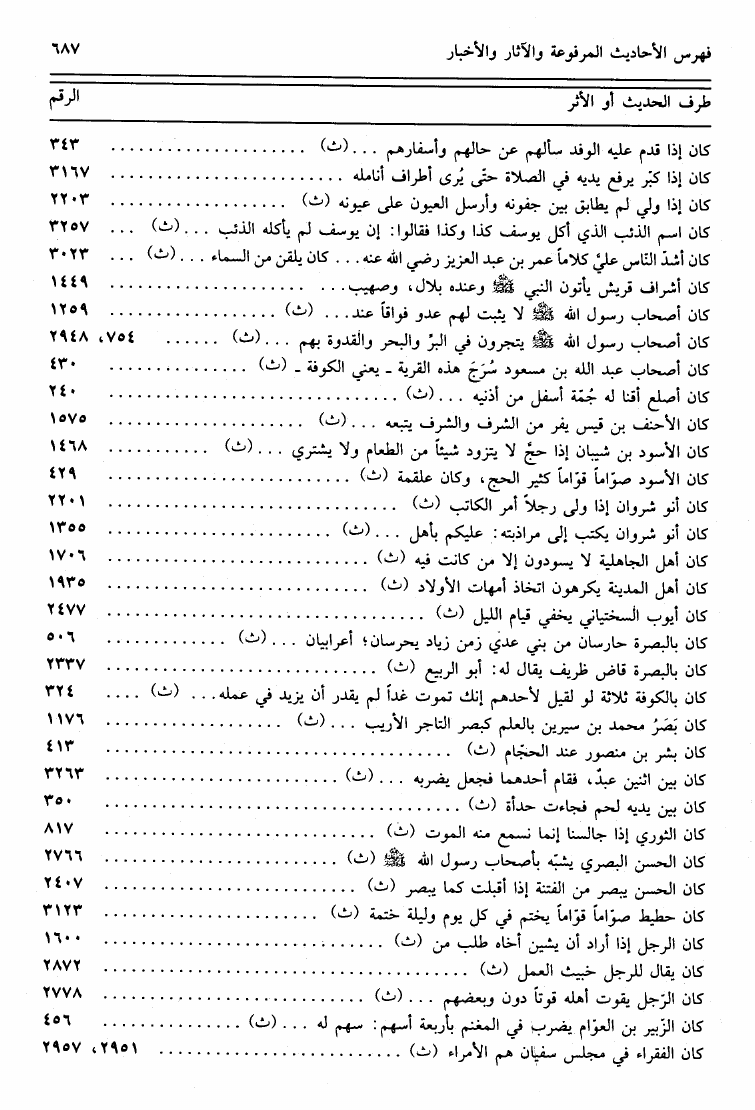 فهرس الأحاديث المرفوعة والآثار والأخبار ٦٨٧
طرف الحديث أو الأثر الرقم
كان إذا قدم عليه الوفد سألهم عن حالهم وأسفارهم ... (ث) ..................... ٣٤٣
كان إذا كبّر يرفع يديه في الصلاة حتّى يُرى أطراف أنامله ..................... ٣١٦٧
كان إذا ولي لم يطابق بين جفونه وأرسل العيون على عيونه (ث) ................ ٢٢٠٣
كان اسم الذئب الذي أكل يوسف كذا وكذا فقالوا: إن يوسف لم يأكله الذئب ... (ث) ... ٣٢٥٧
كان أشدّ النّاس عليَّ كلاماً عمر بن عبد العزيز رضي الله عنه... كان يلقن من السماء ... (ث) ... ٣٠٢٣
كان أشراف قريش يأتون النبي ﷺ وعنده بلال، وصهيب... ..................... ١٤٤٩
كان أصحاب رسول الله ﷺ لا يثبت لهم عدو فواقاً عند... (ث) ................. ١٢٥٩
كان أصحاب رسول الله ﷺ يتجرون في البرِّ والبحر والقدوة بهم ... (ث) ...... ٧٥٤، ٢٩٤٨
كان أصحاب عبد الله بن مسعود سُرَجَ هذه القرية ـ يعني الكوفة ـ (ث) ............... ٤٣٠
كان أصلع أقنا له جُمّة أسفل من أذنيه ... (ث) .............................. ٢٤٠
كان الأحنف بن قيس يفر من الشرف والشرف يتبعه ... (ث) ..................... ١٥٧٥
كان الأسود بن شيبان إذا حجَّ لا يتزود شيئاً من الطعام ولا يشتري ... (ث) ........... ١٤٦٨
كان الأسود صوّاماً قوّاماً كثير الحج، وكان علقمة (ث) .......................... ٤٢٩
كان أنو شروان إذا ولى رجلاً أمر الكاتب (ث) ................................ ٢٢٠١
كان أنو شروان يكتب إلى مراذبته: عليكم بأهل ... (ث) ........................ ١٣٥٥
كان أهل الجاهلية لا يسودون إلا من كانت فيه (ث) ............................. ١٧٠٦
كان أهل المدينة يكرهون اتخاذ أمهات الأولاد (ث) ............................. ١٩٣٥
كان أيوب السختياني يخفي قيام الليل (ث) .................................. ٢٤٧٧
كان بالبصرة حارسان من بني عدي زمن زياد يحرسان؛ أعرابيان ... (ث) ............. ٥٠٦
كان بالبصرة قاض ظريف يقال له: أبو الربيع (ث) ............................. ٢٣٣٧
كان بالكوفة ثلاثة لو لقيل لأحدهم إنك تموت غداً لم يقدر أن يزيد في عمله... (ث) .... ٣٢٤
كان بَصَرُ محمد بن سيرين بالعلم كبصر التاجر الأريب ... (ث) ................... ١١٧٦
كان بشر بن منصور عند الحجّام (ث) ..................................... ٤١٣
كان بين اثنين عبدٌ، فقام أحدهما فجعل يضربه ... (ث) ......................... ٣٢٦٣
كان بين يديه لحم فجاءت حدأة (ث) ...................................... ٣٥٠
كان الثوري إذا جالسنا إنما نسمع منه الموت (ث) ............................. ٨١٧
كان الحسن البصري يشبّه بأصحاب رسول الله ﷺ (ث) ......................... ٢٧٦٦
كان الحسن يبصر من الفتنة إذا أقبلت كما يبصر (ث) .......................... ٢٤٠٧
كان حطيط صوّاماً قوّاماً يختم في كل يوم وليلة ختمة (ث) ....................... ٣١٢٣
كان الرجل إذا أراد أن يشين أخاه طلب من (ث) .............................. ١٦٠٠
كان يقال للرجل خبيث العمل (ث) ....................................... ٢٨٧٢
كان الرّجل يقوت أهله قوتاً دون وبعضهم ... (ث) ............................. ٢٧٧٨
كان الزّبير بن العوّام يضرب في المغنم بأربعة أسهم: سهم له ... (ث) ............... ٤٥٦
كان الفقراء في مجلس سفيان هم الأمراء (ث) .......................... ٢٩٥١، ٢٩٥٧